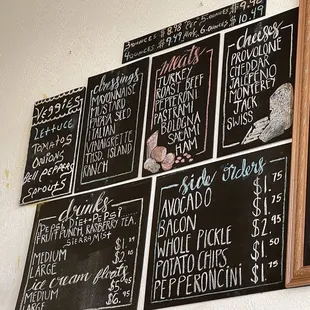 3 OUNCES $8.98
4 OUNCES $9.49
5-OUNCES $9.98
6-OUNCES $10.49
VEGGIES
LETTUCE
TOMATOS
ONIONS
Bell PEPPER
Sprouts
dressings
MAYONNAISE
MUSTARD
ITALIAN
VINAIGRETTE
THSD. ISLAND
RANCH
MEATS
TURKEY
ROAST BEEF
PEPPERONI
PASTRAMI
BOLOGNA
SALAMI
HAM
cheeses
PROVOLONE
CHEDDAR
JALAPENO
MONTEREY
JACK
SWISS
drinks
PEPSI, DIET-PEPSI
FRUIT PUNCH, RASPBERRY TEA,
SIERRA MIST
MEDIUM
LARGE
ice cream floats
MEDIUM
LARGE
side orders
AVOCADO $1.75
BACON $2.95
WHOLE PICKLE $1.75
POTATO CHIPS $1.50
PEPPERONCINI $1.75